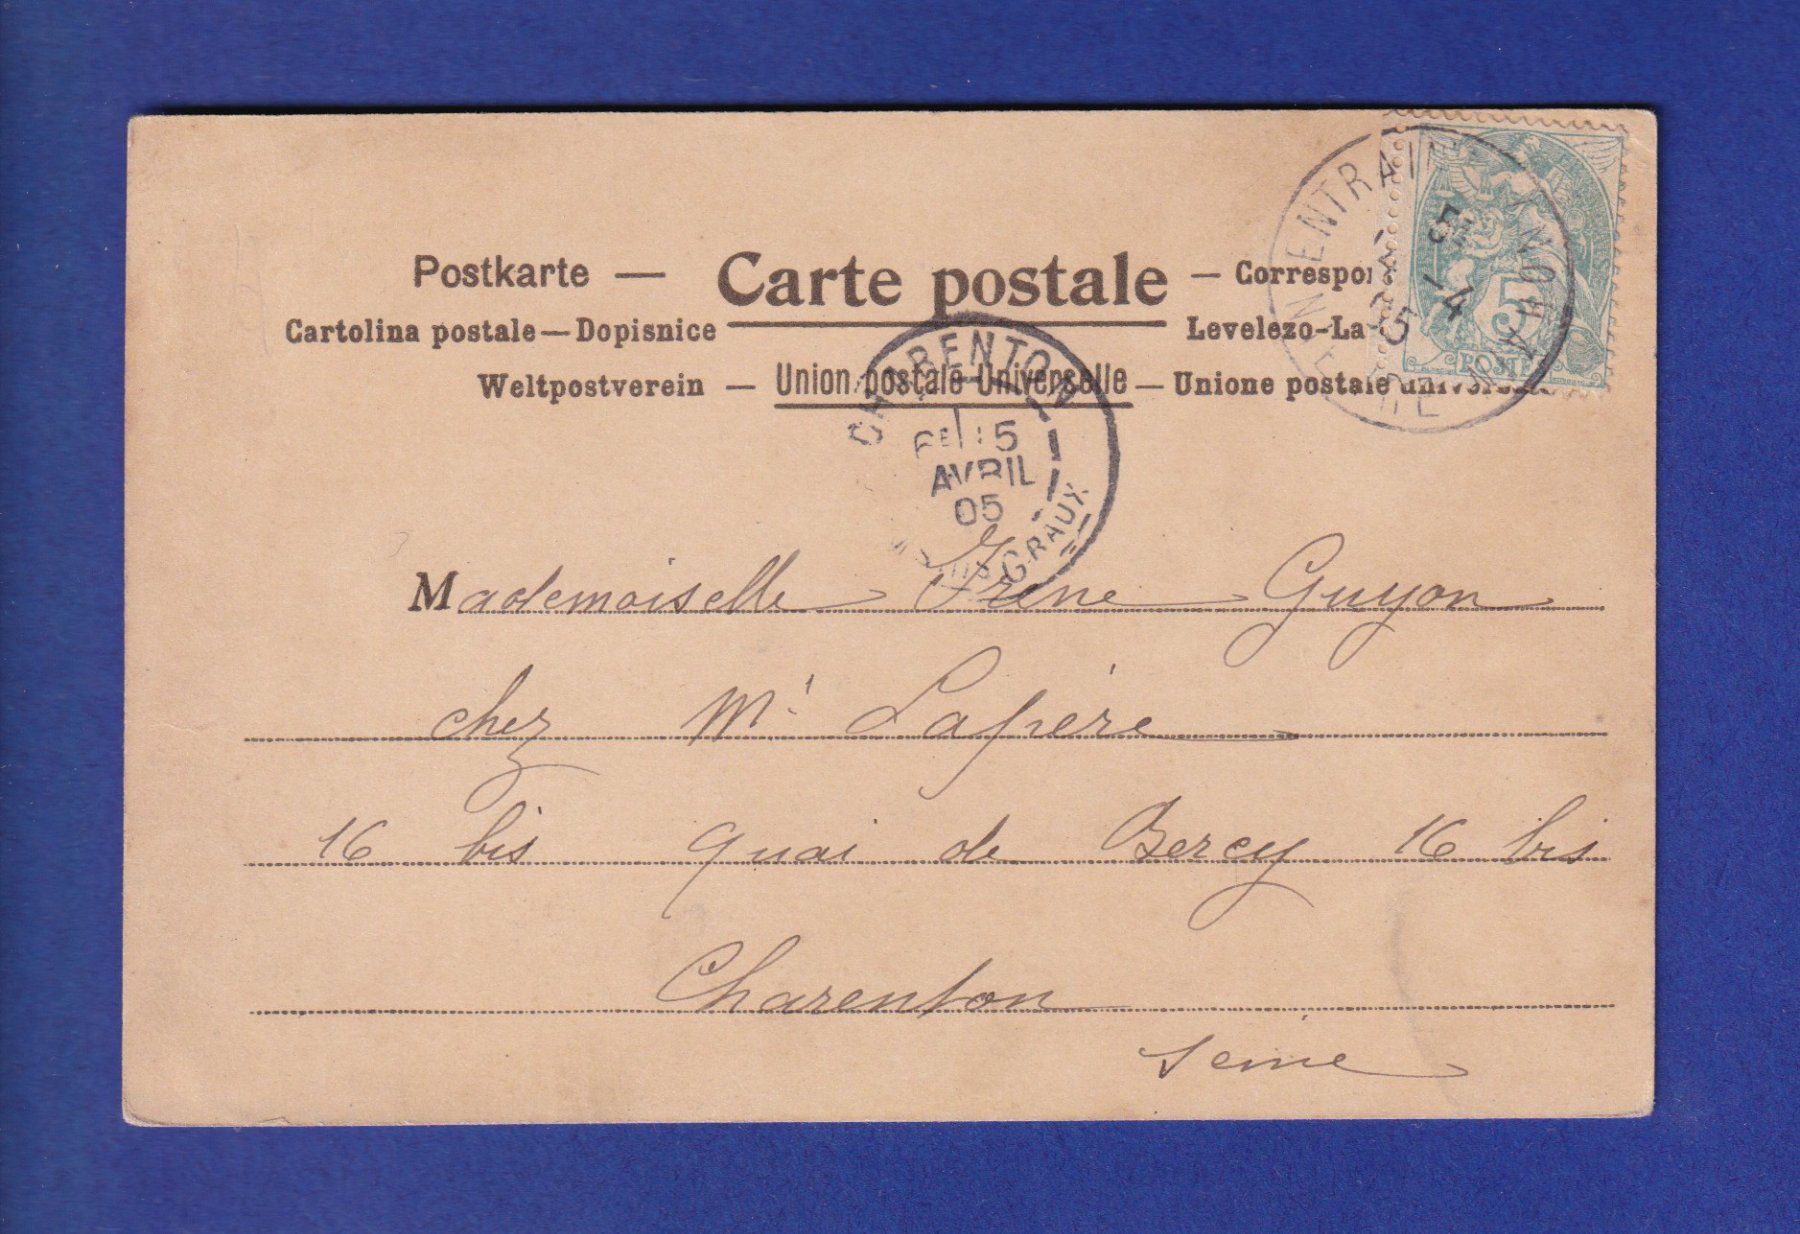 Postkarte — Carte postale — Correspon
Cartolina postale—Dopisnice Levelezo-La
Weltpostverein — Union postale Universelle — Unione postale universale
ENTRAIN
5 -4
05
5
POSTE
CHARENTON
5
AVRIL
05
GRAUX
Mademoiselle Irène Guyon
chez Mr Lapière
16 bis quai de Bercy 16 bis
Charenton
Seine